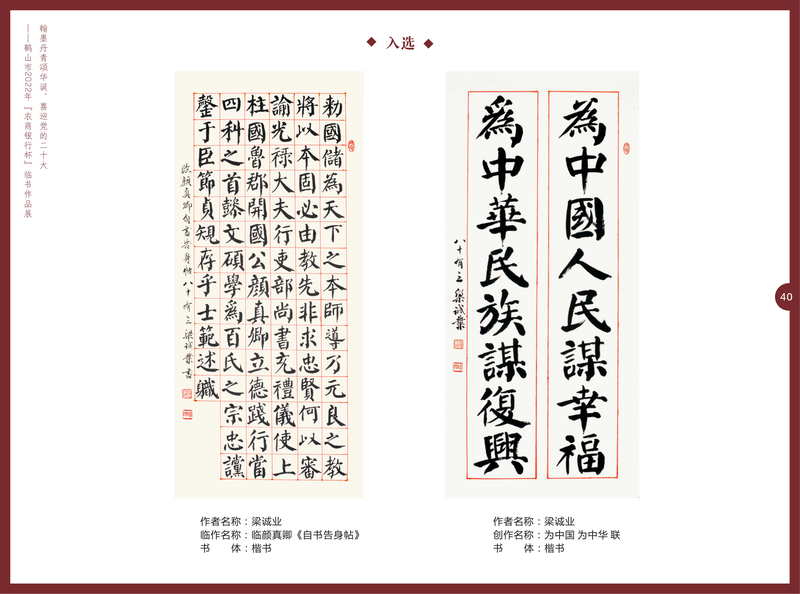 翰墨丹青颂华诞、喜迎党的二十大
——鹤山市2022年『农商银行杯』临书作品展
入选
勑國儲為天下之本師導乃元良之教
將以本固必由教先非求忠賢何以審
諭光祿大夫行吏部尚書充禮儀使上
柱國魯郡開國公顏真卿立德踐行當
四科之首懿文碩學爲百氏之宗忠讜
罄于臣節貞規存乎士範述職
临颜真卿自書告身帖 八十有三 梁诚業書
為中國人民謀幸福
爲中華民族謀復興
八十有三 梁诚業
作者名称：梁诚业
临作名称：临颜真卿《自书告身帖》
书 体：楷书
作者名称：梁诚业
创作名称：为中国 为中华 联
书 体：楷书
40